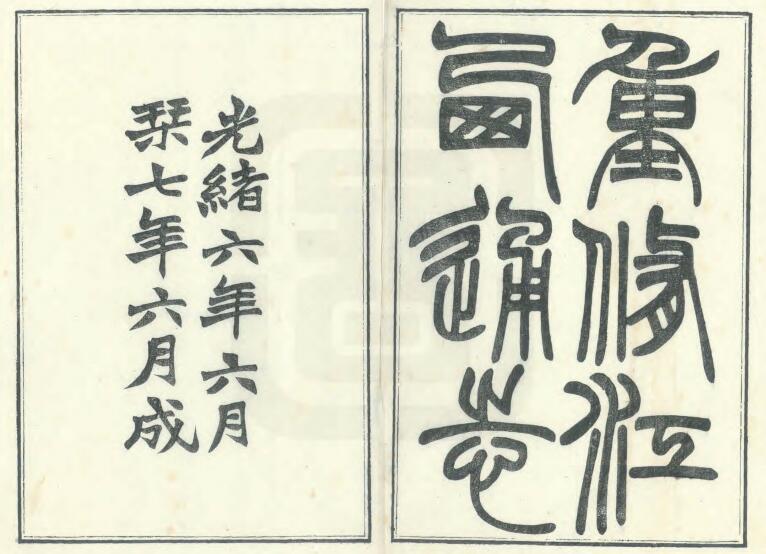 重修江
西通志
光緒六年六月
栞七年六月成